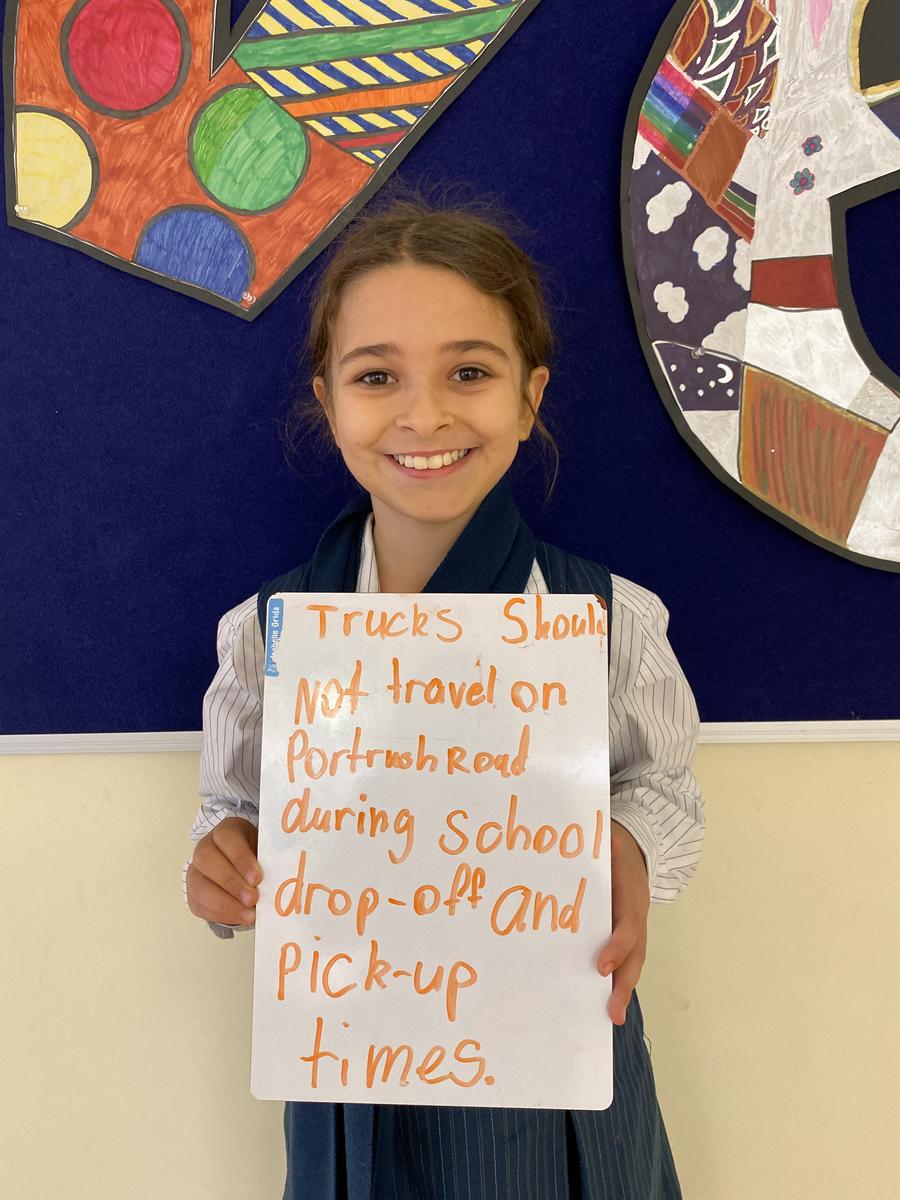 Trucks Should
Not travel on
Portrush Road
during school
drop-off and
Pick-up
times.